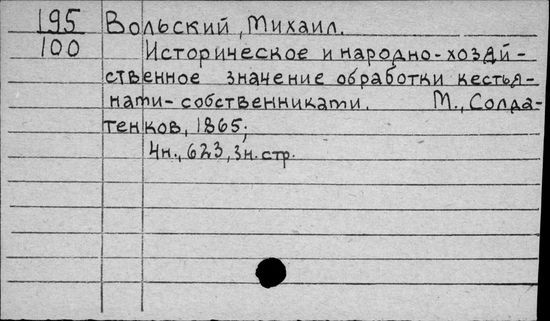 195 Вольский, Михаил.
100 Историческое и народно-хозяй-
ственное значение обработки кестья-
нати-собственникати. М., Солда-
тенков, 1865;
4н., 623, 3н. стр.